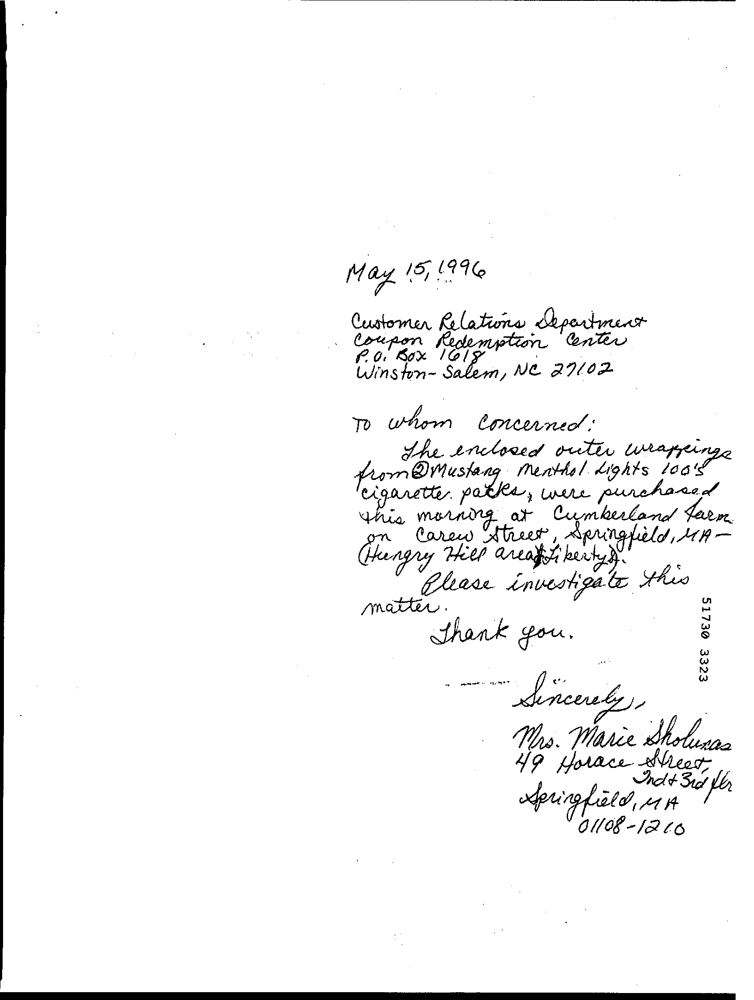 May 15, 1996
Customer Relations Department
Coupon Redemption Center
P.O. Box 1618
Winston-Salem, NC 27102
To whom concerned:
The enclosed outer wrappings
from ② Mustang Menthol Lights 100's
cigarette packs, were purchased
this morning at Cumberland Farm
on Carew Street, Springfield, MA-
(Hungry Hill area Liberty).
Please investigate this
matter.
Thank you.
51730 3323
Sincerely,
Mrs. Marie Sholunas
49 Horace Street,
2nd + 3rd flr
Springfield, MA
01108-1210